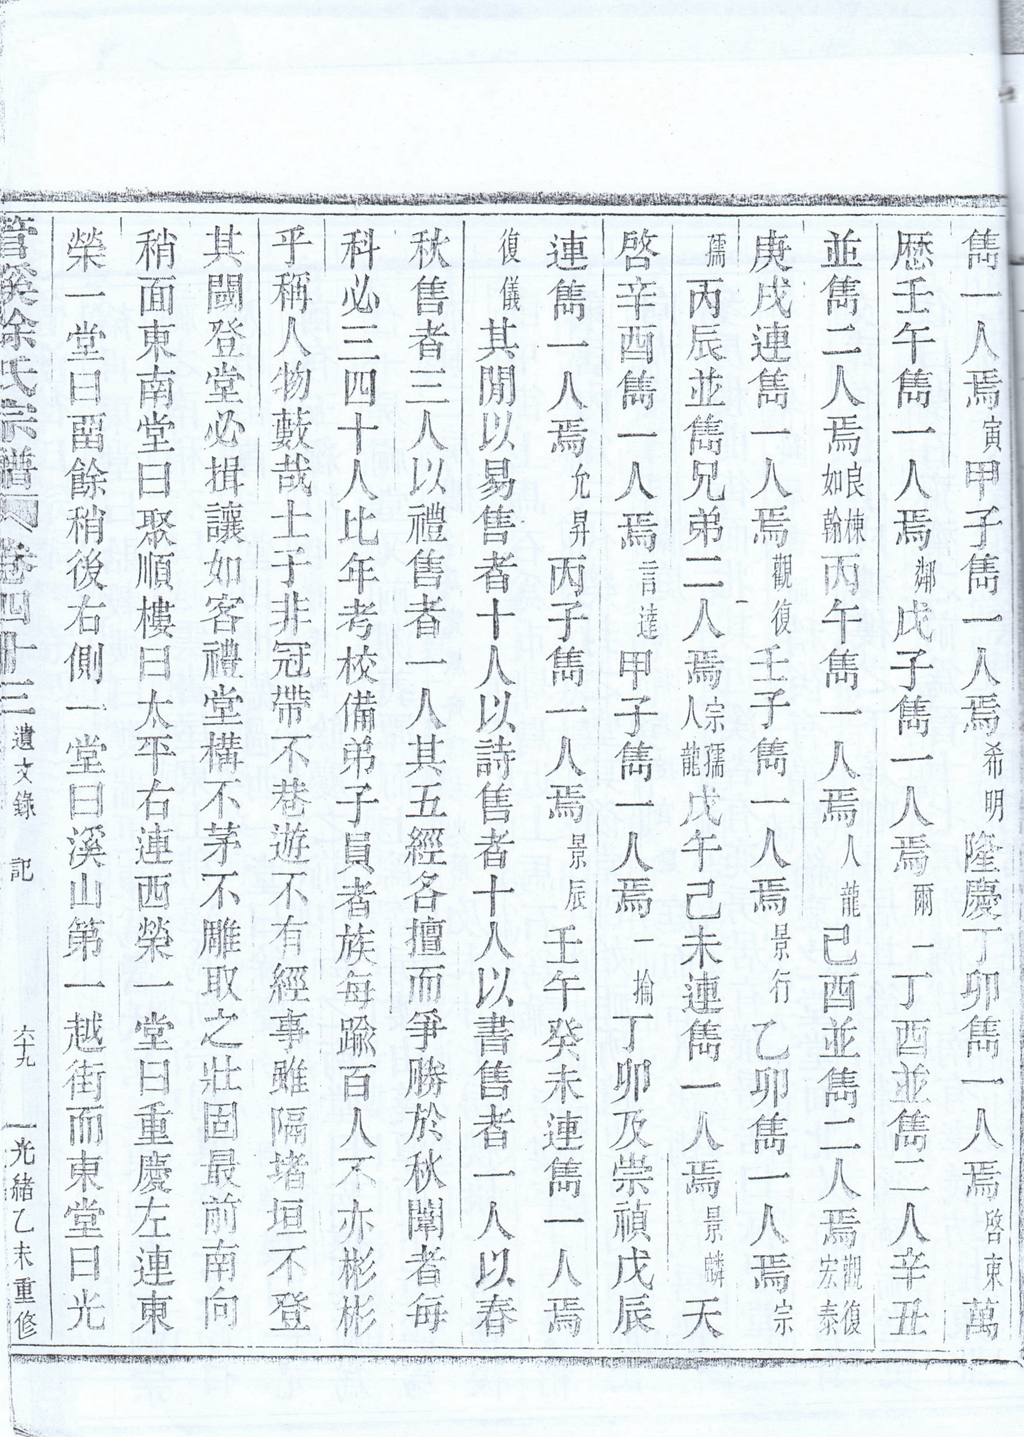 雋一人焉寅甲子雋一人焉希明隆慶丁卯雋一人焉啓東萬
歷壬午雋一人焉鄰戊子雋一人焉爾一丁酉並雋二人辛丑
並雋二人焉良棟如翰丙午雋一人焉人龍己酉並雋二人焉觀復宏泰
庚戌連雋一人焉觀復壬子雋一人焉景行乙卯雋一人焉宗
孺丙辰並雋兄弟二人焉宗孺人龍戊午己未連雋一人焉景麟天
啓辛酉雋一人焉言達甲子雋一人焉一掄丁卯及崇禎戊辰
連雋一人焉允昇丙子雋一人焉景辰壬午癸未連雋一人焉
復儀其閒以易售者十人以詩售者十人以書售者一人以春
秋售者三人以禮售者一人其五經各擅而爭勝於秋闈者每
科必三四十人比年考校備弟子員者族每踰百人不亦彬彬
乎稱人物藪哉士子非冠帶不巷遊不有經事雖隔堵垣不登
其閾登堂必揖讓如客禮堂構不茅不雕取之壯固最前南向
稍面東南堂曰聚順樓曰太平右連西榮一堂曰重慶左連東
榮一堂曰畱餘稍後右側一堂曰溪山第一越街而東堂曰光
管溪徐氏宗譜 卷四十三 遺文錄 記 六十九 光緒乙未重修